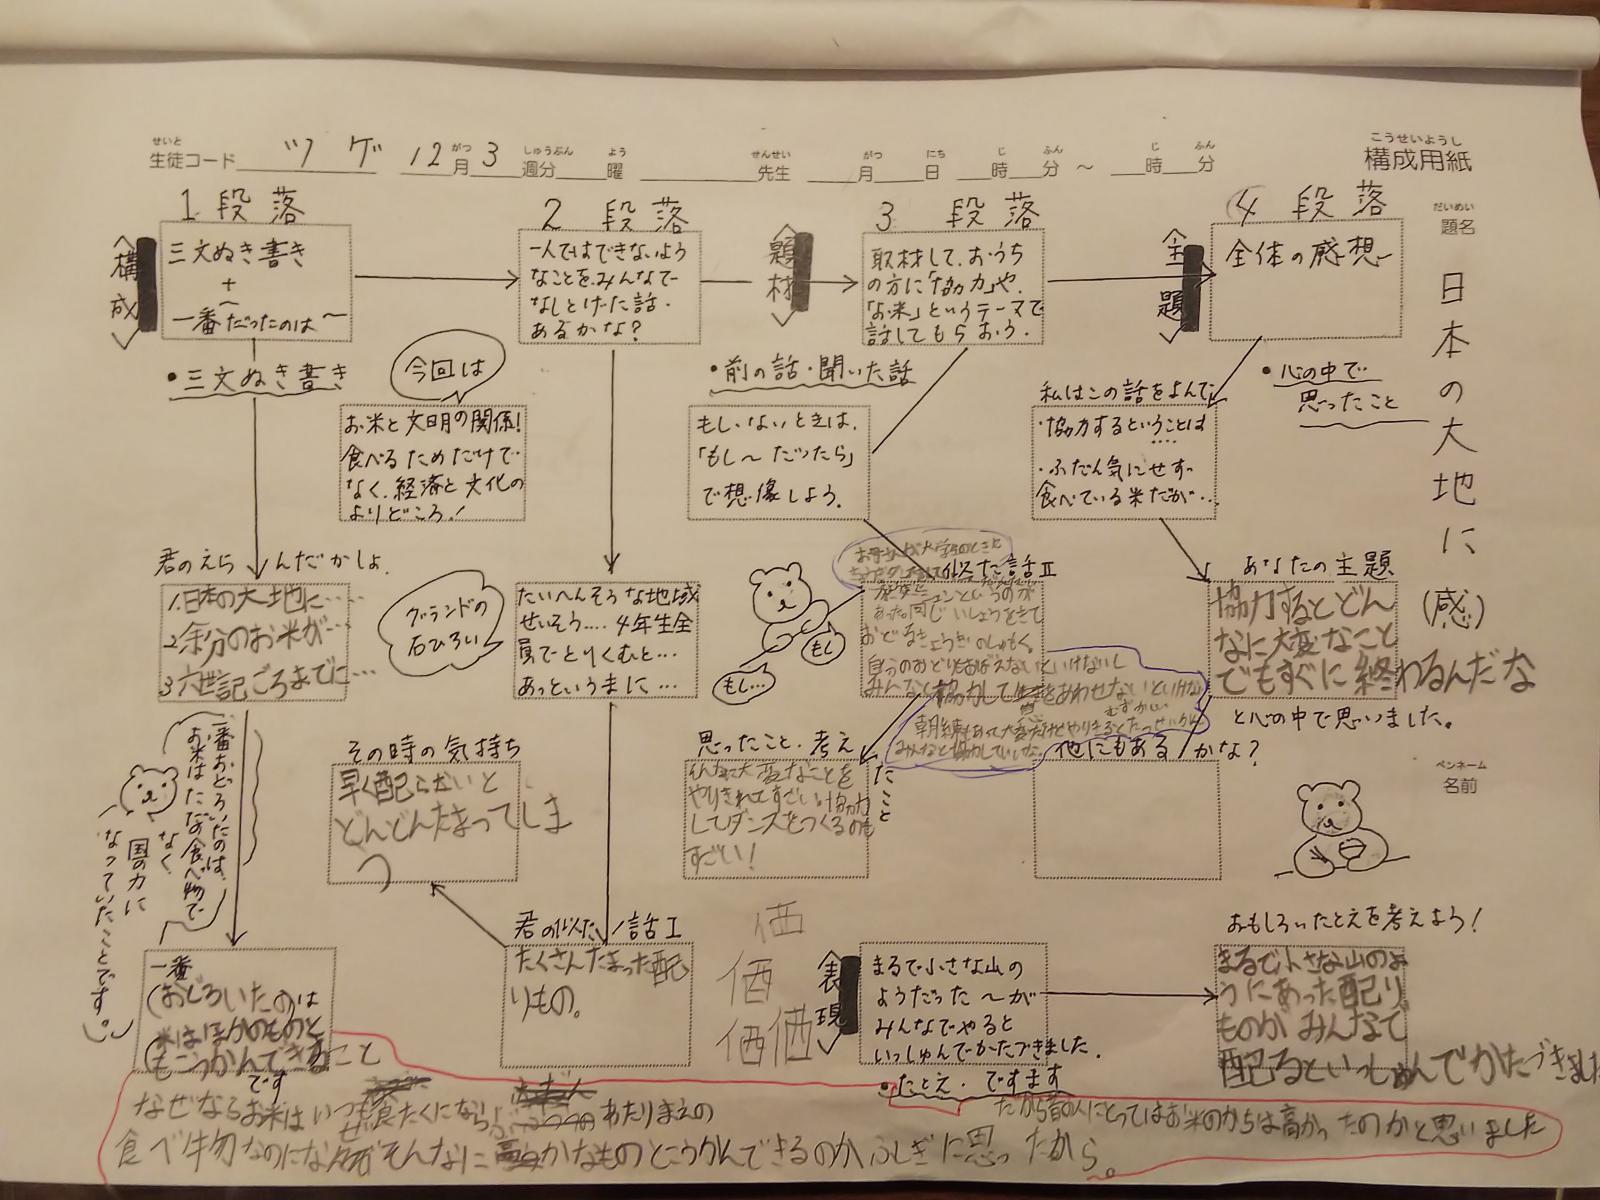 こうせいようし
構成用紙
せいと
生徒コード ツゲ 12月3週分 曜 先生 月 日 時 分 ～ 時 分
だいめい
題名
日本の大地に(感)
ペンネーム
名前
1 段落
〈構成〉
三文ぬき書き
+
一番だったのは～
・三文ぬき書き
今回は
お米と文明の関係!
食べるためだけで
なく、経済と文化の
よりどころ!
君のえらんだかしょ
1.日本の大地に‥‥
2余分のお米が‥‥
3六世記ごろまでに‥‥
一番おどろいたのは、
お米はただの食べ物で
なく
国の力に
なっていたことです。
一番
(おどろいたのは
米はほかのものと
もこうかんできること
です
なぜなるお米はいつも食
あたりまえの
食べ物なのになぜそんなに
かなものとこうかんできるのかふしぎに思ったから。
だから昔の人にとってはお米のかちは高かったのかと思いました
2 段落
一人ではできないよう
なことを、みんなで
なしとげた話・
あるかな?
グランドの
石ひろい
たいへんそうな地域
せいそう‥‥4年生全
員でとりくむと‥‥
あっというまに‥‥
君の似た話I
たくさんたまった配
りもの。
その時の気持ち
早く配らないと
どんどんたまってしま
う
3 段落
〈題材〉
取材して、おうち
の方に「協力」や、
「お米」というテーマで
話してもらおう。
・前の話・聞いた話
もし、ないときは、
「もし～だったら」
で想像しよう。
もし
もし…
似た話II
お母さんが大学生のときに
があった。同じいしょうをきて
おどるきょうぎのしゅもく。
自分のおどりをおぼえないといけないし
みんなと協力して
をあわせないといけない
みんなと協力していた。
思ったこと・考えたこと
そんなに大変なことを
やりきれてすごいし協力
してダンスをつくるのも
すごい!
価
価
価価
4 段落
〈主題〉
全体の感想
・心の中で
思ったこと
私はこの話をよんで、
・協力するということは
‥‥
・ふだん気にせず
食べている米だが‥‥
あなたの主題
協力するとどん
なに大変なこと
でもすぐに終わるんだな
と心の中で思いました。
他にもあるかな?
〈表現〉
まるで小さな山の
ようだった～が
みんなでやると
いっしゅんでかたづきました。
・たとえ・ですます
おもしろいたとえを考えよう!
まるで小さな山のよ
うにあった配り
ものがみんなで
配るといっしゅんでかたづきました